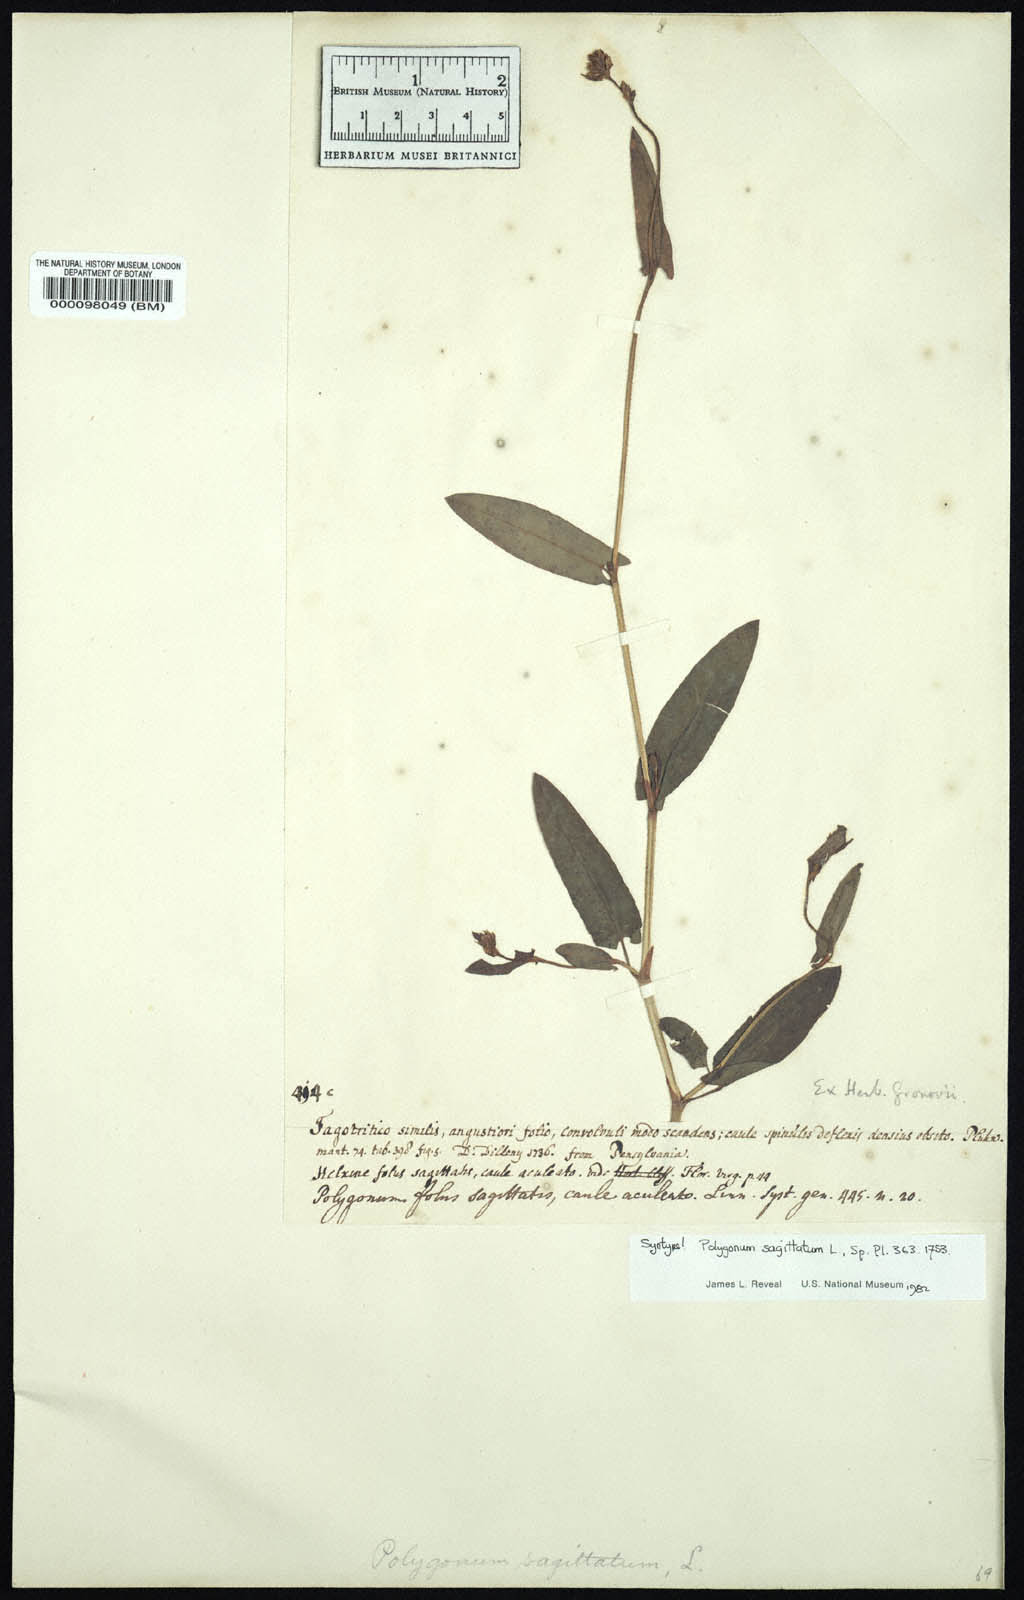 1 2
BRITISH MUSEUM (NATURAL HISTORY)
1 2 3 4 5
HERBARIUM MUSEI BRITANNICI
THE NATURAL HISTORY MUSEUM, LONDON
DEPARTMENT OF BOTANY
000098049 (BM)
Ex Herb. Gronovii.
Fagotritico similis, angustiori folio, convolvuli modo scandens; caule spinulis deflexis densius obsito. Pluk.
mant. 74. tab. 398 fig. 5. Dr. Dilleny 1736. from Pensylvania.
Helxine folus sagittatis, caule aculeato. Flor. Virg. p. 44
Polygonum folus sagittatis, caule aculeato. Linn. Syst. gen. 445. n. 20.
Syntype! Polygonum sagittatum L., Sp. Pl. 363. 1753.
James L. Reveal U.S. National Museum 1982
Polygonum sagittatum, L.
69